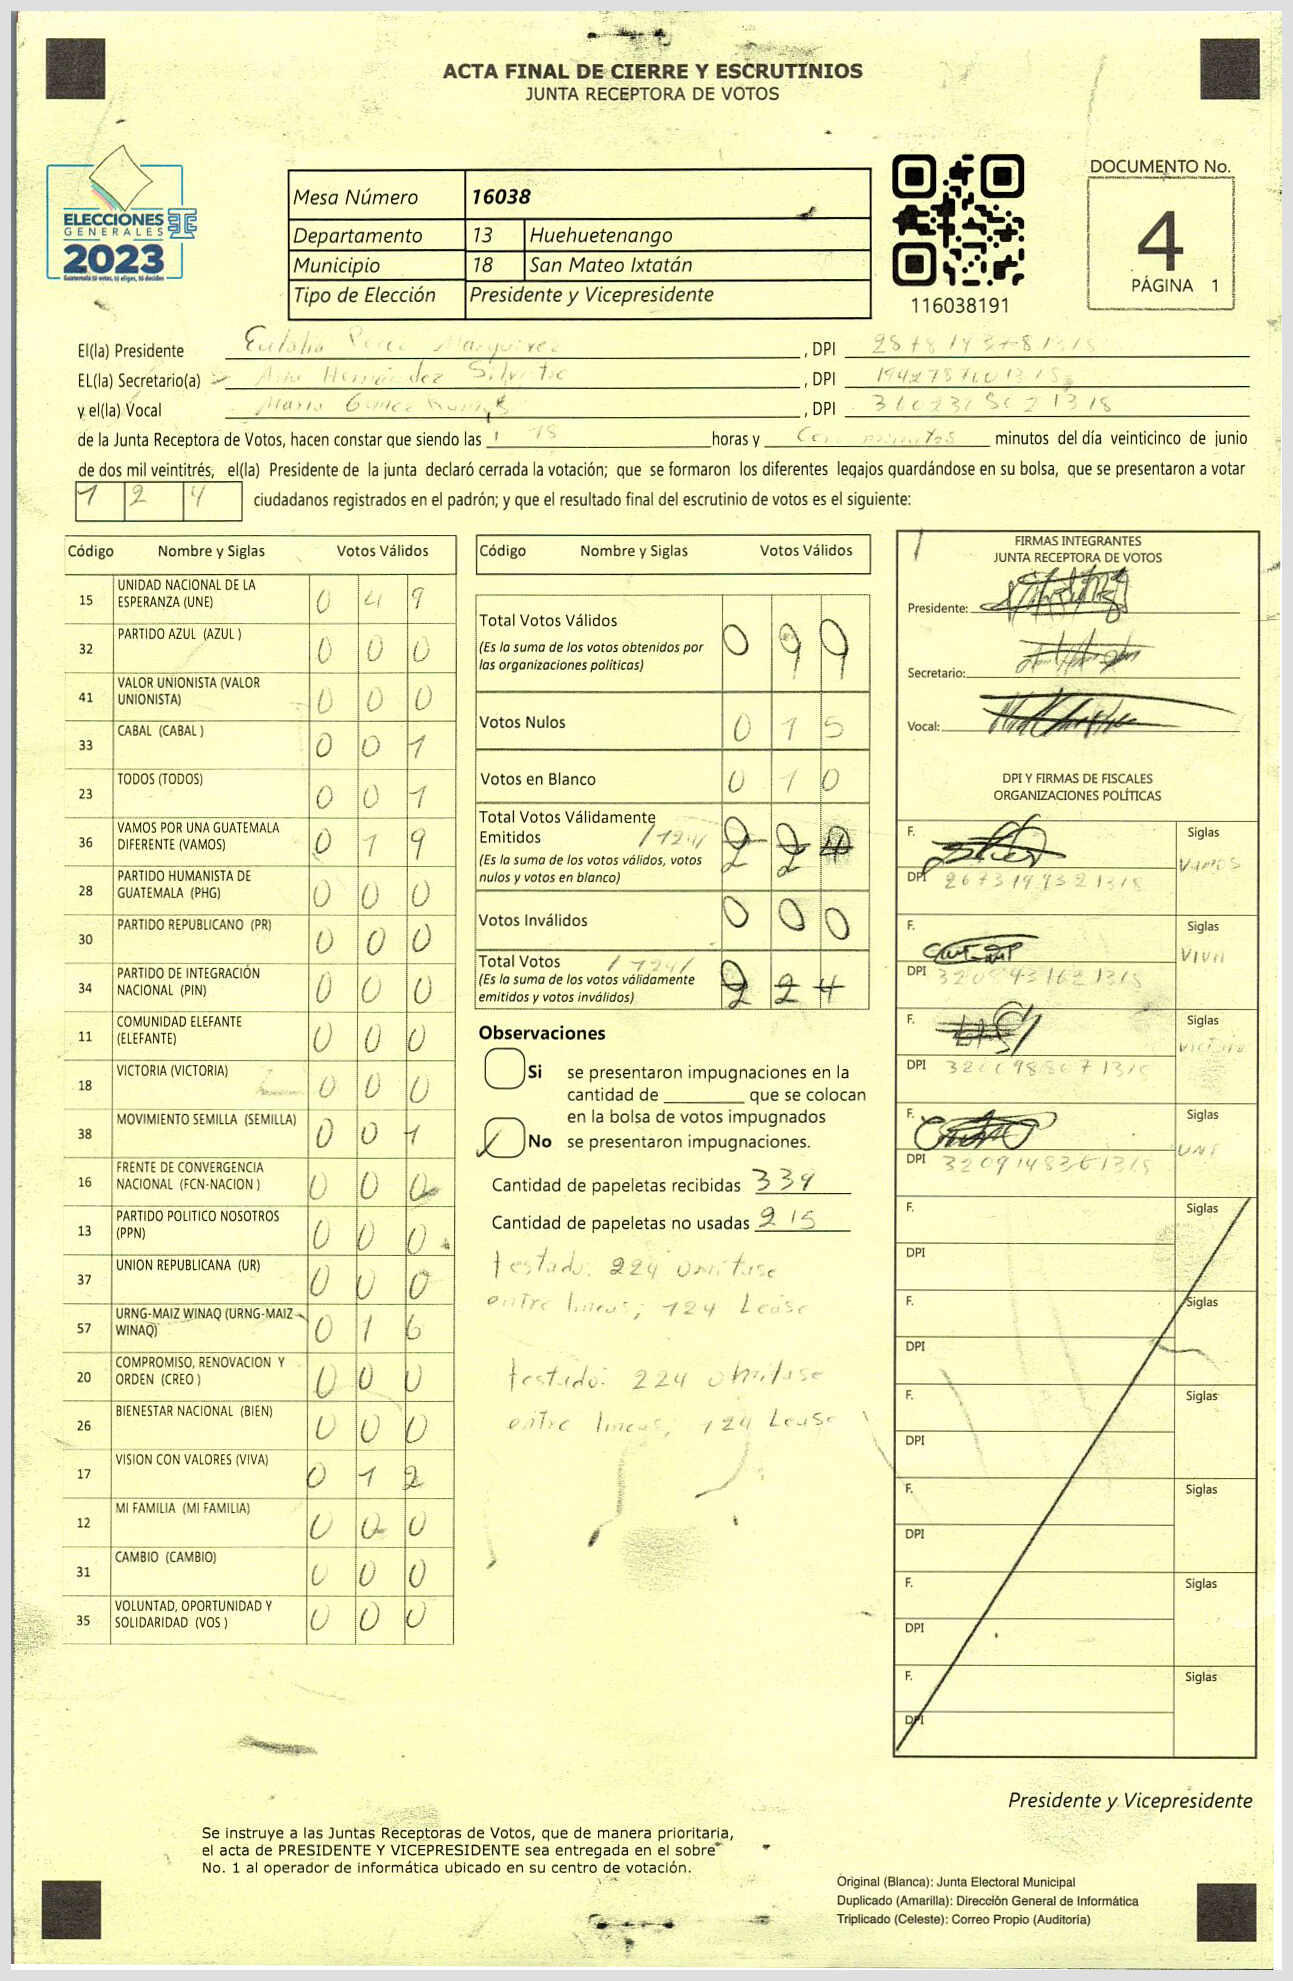 ACTA FINAL DE CIERRE Y ESCRUTINIOS
JUNTA RECEPTORA DE VOTOS
ELECCIONES
GENERALES
2023
Guatemala tú votas, tú eliges, tú decides
Mesa Número 16038
Departamento 13 Huehuetenango
Municipio 18 San Mateo Ixtatán
Tipo de Elección Presidente y Vicepresidente
116038191
DOCUMENTO No.
4
PÁGINA 1
El(la) Presidente Eulalia Perez Marquirez , DPI
EL(la) Secretario(a) Hernández Silvestre , DPI
y el(la) Vocal , DPI
de la Junta Receptora de Votos, hacen constar que siendo las 18 horas y Cero minutos minutos del día veinticinco de junio
de dos mil veintitrés, el(la) Presidente de la junta declaró cerrada la votación; que se formaron los diferentes legajos guardándose en su bolsa, que se presentaron a votar
1 2 4 ciudadanos registrados en el padrón; y que el resultado final del escrutinio de votos es el siguiente:
Código Nombre y Siglas Votos Válidos
15 UNIDAD NACIONAL DE LA ESPERANZA (UNE) 0 4 9
32 PARTIDO AZUL (AZUL ) 0 0 0
41 VALOR UNIONISTA (VALOR UNIONISTA) 0 0 0
33 CABAL (CABAL ) 0 0 1
23 TODOS (TODOS) 0 0 1
36 VAMOS POR UNA GUATEMALA DIFERENTE (VAMOS) 0 1 9
28 PARTIDO HUMANISTA DE GUATEMALA (PHG) 0 0 0
30 PARTIDO REPUBLICANO (PR) 0 0 0
34 PARTIDO DE INTEGRACIÓN NACIONAL (PIN) 0 0 0
11 COMUNIDAD ELEFANTE (ELEFANTE) 0 0 0
18 VICTORIA (VICTORIA) 0 0 0
38 MOVIMIENTO SEMILLA (SEMILLA) 0 0 1
16 FRENTE DE CONVERGENCIA NACIONAL (FCN-NACION ) 0 0 0
13 PARTIDO POLITICO NOSOTROS (PPN) 0 0 0
37 UNION REPUBLICANA (UR) 0 0 0
57 URNG-MAIZ WINAQ (URNG-MAIZ WINAQ) 0 1 6
20 COMPROMISO, RENOVACION Y ORDEN (CREO ) 0 0 0
26 BIENESTAR NACIONAL (BIEN) 0 0 0
17 VISION CON VALORES (VIVA) 0 1 2
12 MI FAMILIA (MI FAMILIA) 0 0 0
31 CAMBIO (CAMBIO) 0 0 0
35 VOLUNTAD, OPORTUNIDAD Y SOLIDARIDAD (VOS ) 0 0 0
Código Nombre y Siglas Votos Válidos
Total Votos Válidos 0 9 9
(Es la suma de los votos obtenidos por
las organizaciones políticas)
Votos Nulos 0 1 5
Votos en Blanco 0 1 0
Total Votos Válidamente
Emitidos /124/ 2 2 4
(Es la suma de los votos válidos, votos
nulos y votos en blanco)
Votos Inválidos 0 0 0
Total Votos /124/
(Es la suma de los votos válidamente 2 2 4
emitidos y votos inválidos)
Observaciones
Si se presentaron impugnaciones en la
cantidad de ________ que se colocan
en la bolsa de votos impugnados
No se presentaron impugnaciones.
Cantidad de papeletas recibidas 339
Cantidad de papeletas no usadas 215
testado: 224 omitase
entre lineas; 124 Lease
testado: 224 omitase
entre lineas, 124 Lease
FIRMAS INTEGRANTES
JUNTA RECEPTORA DE VOTOS
Presidente:
Secretario:
Vocal:
DPI Y FIRMAS DE FISCALES
ORGANIZACIONES POLÍTICAS
F. Siglas
DPI VAMOS
F. Siglas
DPI VIVA
F. Siglas
DPI Victoria
F. Siglas
DPI UNE
F. Siglas
DPI
F. Siglas
DPI
F. Siglas
DPI
F. Siglas
DPI
F. Siglas
DPI
F. Siglas
DPI
Presidente y Vicepresidente
Se instruye a las Juntas Receptoras de Votos, que de manera prioritaria,
el acta de PRESIDENTE Y VICEPRESIDENTE sea entregada en el sobre
No. 1 al operador de informática ubicado en su centro de votación.
Original (Blanca): Junta Electoral Municipal
Duplicado (Amarilla): Dirección General de Informática
Triplicado (Celeste): Correo Propio (Auditoría)